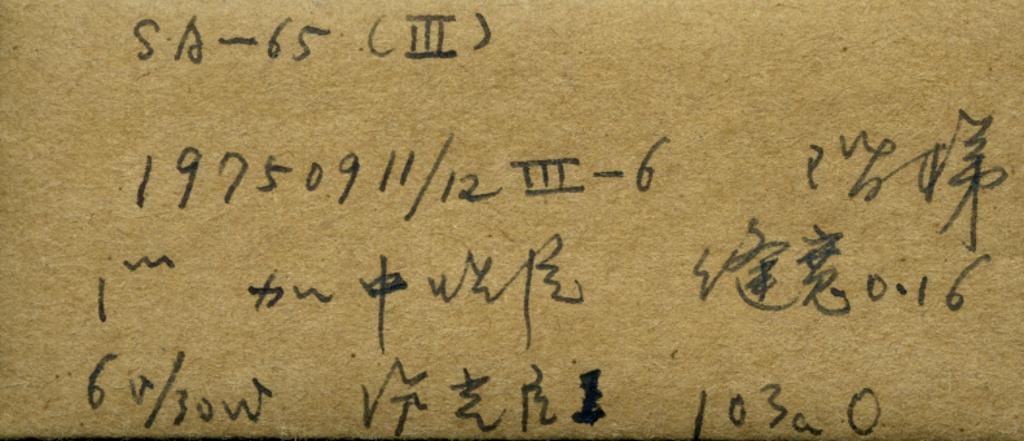 SA-65 (III)
19750911/12 III-6 階梯
1ᵐ 加中 缝宽0.16
6V/30W 103aO